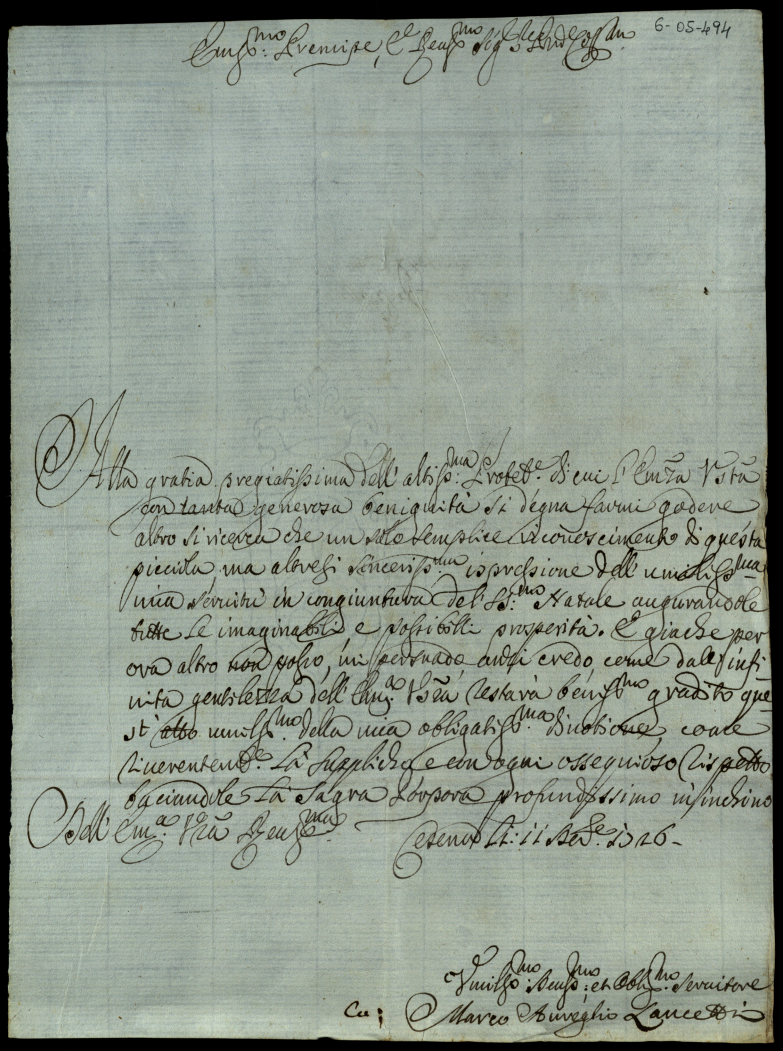 6-05-494
Em̃o: e Premĩpe, e Reuss.mo Sig.
Alla gratia pregiatissima dell' altiss:ma Protet.e di cui l' Em̃za Vs̃tra
con tanta generosa benignità si degna farmi godere
altro si ricerca che un solo semplice riconoscimento di questa
picciola, ma altresi sinceriss.ma ispressione dell' umiliss:ma
mia servitù in congiuntura del SS:mo Natale augurandole
tutte le imaginabili e possibili prosperità. E giache per
ora altro non posso, mi persuado anzi credo come dall' infi
nita gentilezza dell' Em.a Vs̃ra restarà benig.mo gradito que
st' atto umiliss:mo della mia obligatiss:ma divotione come
riverentem.e La supplicho, e con ogni ossequioso rispetto
baciandole La Sagra Porpora profundissimo m'inchino
Dell' Em.a Vr̃a Reuss.ma
Cesena Li: 11 1726-
Umiliss:mo Deuss:mo: et Oblig:mo Servitore
Marco Aureglio Lancetti
Ca: